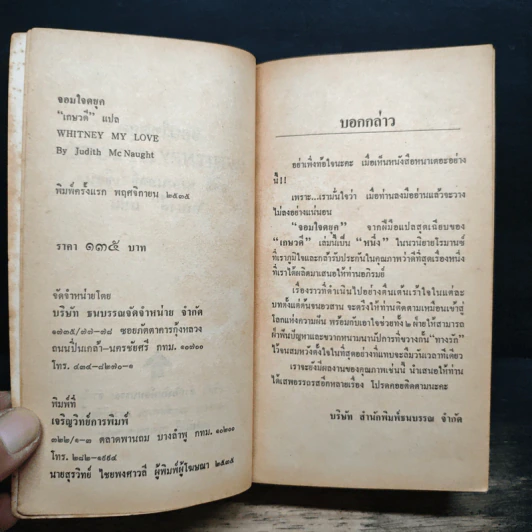 จอมใจดยุค
“เกษวดี” แปล
WHITNEY MY LOVE
By Judith Mc Naught
พิมพ์ครั้งแรก พฤศจิกายน ๒๕๓๕
ราคา ๑๓๕ บาท
จัดจำหน่ายโดย
บริษัท ธนบรรณจัดจำหน่าย จำกัด
๑๗๓๕/๗๗-๗๘ ซอยภัตตาคารกุ้งหลวง
ถนนปิ่นเกล้า-นครชัยศรี กทม. ๑๐๗๐๐
โทร. ๔๓๔-๘๒๗๐-๑
พิมพ์ที่
เจริญวิทย์การพิมพ์
๓๒๒/๑-๓ ตลาดพานถม บางลำพู กทม. ๑๐๒๐๐
โทร. ๒๘๒-๑๙๙๔
นายสุรวิทย์ ไชยพงศาวลี ผู้พิมพ์ผู้โฆษณา ๒๕๓๕
บอกกล่าว
อย่าเพิ่งท้อใจนะคะ เมื่อเห็นหนังสือหนาเตอะอย่าง
นี้!!
เพราะ...เรามั่นใจว่า เมื่อท่านลงมืออ่านแล้วจะวาง
ไม่ลงอย่างแน่นอน
“จอมใจดยุค” จากฝีมือแปลสุดเฉียบของ
“เกษวดี” เล่มนี้เป็น “หนึ่ง” ในนวนิยายโรมานซ์
ที่เราภูมิใจและกล้ารับประกันในคุณภาพว่าดีที่สุดเรื่องหนึ่ง
ที่เราได้ผลิตมาเสนอให้ท่านอภิรมย์
เรื่องราวที่ดำเนินไปอย่างตื่นเต้นเร้าใจในแต่ละ
บทตั้งแต่ต้นจนอวสาน จะตรึงให้ท่านติดตามเหมือนเข้าสู่
โลกแห่งความฝัน พร้อมกับเอาใจช่วยทั้ง ๒ ฝ่ายให้สามารถ
ฝ่าฟันปัญหาและขวากหนามนานัปการที่ขวางกั้น “ทางรัก”
ไว้จนสมหวังดั่งใจในที่สุดอย่างที่แทบจะลืมวันเวลาทีเดียว
เราจะยังมีผลงานของคุณภาพเช่นนี้ นำเสนอให้ท่าน
ได้เสพอรรถรสอีกหลายเรื่อง โปรดคอยติดตามนะคะ
บริษัท สำนักพิมพ์ธนบรรณ จำกัด